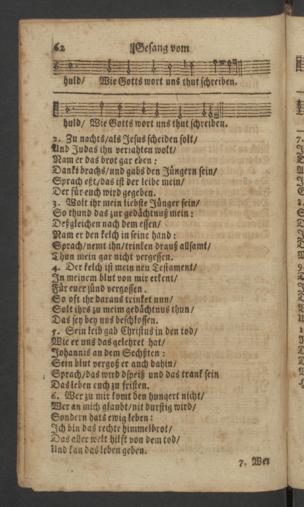 62 Gesang vom
huld/ Wie Gotts wort uns thut schreiben.
huld/ Wie Gotts wort uns thut schreiben.
2. Zu nachts/als Jesus scheiden solt/
Und Judas ihn verrahten wolt/
Nam er das brot gar eben:
Danckt brachs/und gabs den Jüngern sein/
Sprach eßt/das ist der leibe mein/
Der für euch wird gegeben.
3. Wolt ihr mein liebste Jünger sein/
So thund das zur gedächtnuß mein:
Deßgleichen nach dem essen/
Nam er den kelch in seine hand:
Sprach/nemt ihn/trincken drauß allsamt/
Thun mein gar nicht vergessen.
4. Der kelch ist mein neu Testament/
In meinem blut von mir erkent/
Für euer sünd vergossen.
So oft ihr daraus trincket nun/
Solt ihrs zu meim gedächtnus thun/
Das sey bey uns beschlossen.
5. Sein leib gab Christus in den tod/
Wie er uns das gelehret hat/
Johannis an dem Sechsten:
Sein blut vergoß er auch dahin/
Sprach/das wird speiß und das tranck sein
Das leben euch zu fristen.
6. Wer zu mir komt den hungert nicht/
Wer an mich glaubt/nit durstig wird/
Sondern hats ewig leben:
Ich bin das rechte himmelbrot/
Das aller welt hilft von dem tod/
Und kan das leben geben.
7. Wer